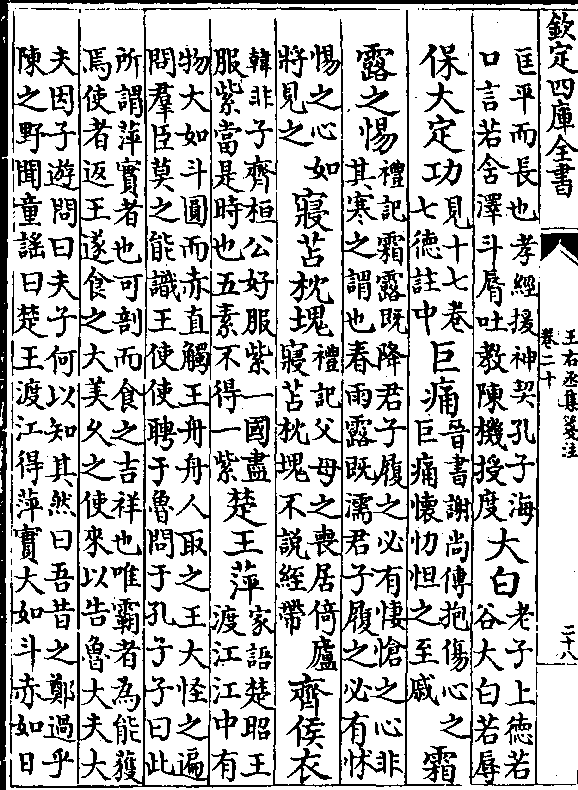 欽定四庫全書
王右丞集箋注
卷二十
二十八
匡平而長也孝經援神契孔子海
口言若舍澤斗脣吐教陳機授度
大白
老子上德若
谷大白若辱
保大定功
見十七卷
七德註中
巨痛
晉書謝尚傳抱傷心之
巨痛懷忉怛之至戚
霜
露之惕
禮記霜露既降君子履之必有悽愴之心非
其寒之謂也春雨露既濡君子履之必有怵
惕之心如
將見之
寢苫枕塊
禮記父母之喪居倚廬
寢苫枕塊不說絰帶
齊侯衣
韓非子齊桓公好服紫一國盡
服紫當是時也五素不得一紫
楚王萍
家語楚昭王
渡江江中有
物大如斗圓而赤直觸王舟舟人取之王大怪之遍
問羣臣莫之能識王使使聘于魯問于孔子子曰此
所謂萍實者也可剖而食之吉祥也唯霸者為能獲
焉使者返王遂食之大美久之使來以告魯大夫大
夫因子遊問曰夫子何以知其然曰吾昔之鄭過乎
陳之野聞童謠曰楚王渡江得萍實大如斗赤如日